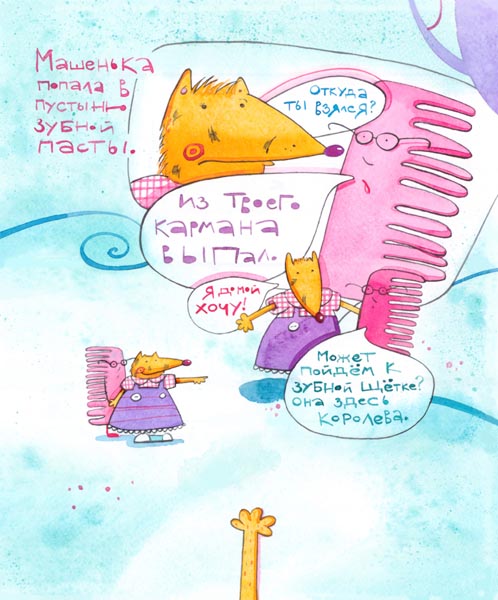 Машенька
попала в
пустыню
зубной
пасты.
Откуда
ты взялся?
из твоего
кармана
выпал.
Я домой
хочу!
Может
пойдём к
зубной щётке?
она здесь
королева.